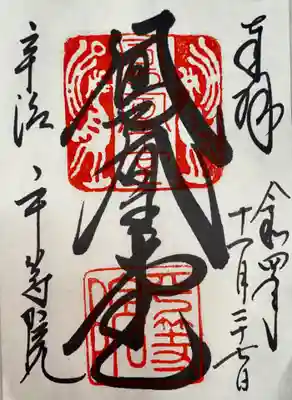 奉拝
令和四年
十一月二十七日
鳳凰堂
宇治 平等院